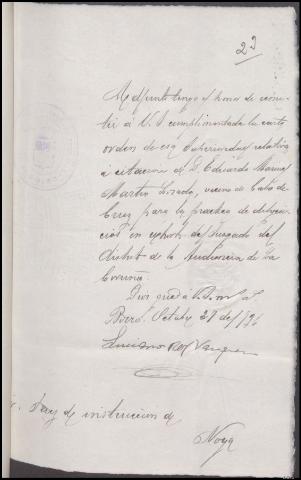 23
Adjunto tengo el honor de remi-
tir á V. S. cumplimentada la carta
orden de esa Superioridad relativa
á citacion de D. Eduardo
Martin Losada, vecino de Cabo de
Cruz para la practica de diligen-
cias en exhorto del Juzgado del
distrito de la Audiencia de La
Coruña.
Dios guarde á V. S. m. a.
Boiro, Octubre 27 de
Luciano R. Vazquez
Juez de instruccion de
Noya